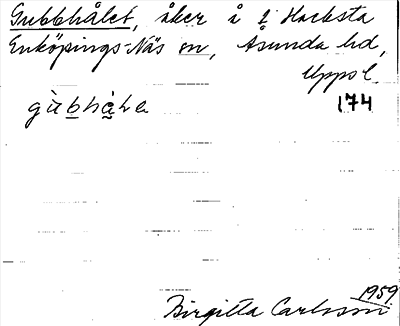 Gubbhålet, åker å 1 Hacksta
Enköpings-Näs sn, Åsunda hd,
Uppsl.
174
1959
Birgitta Carlsson